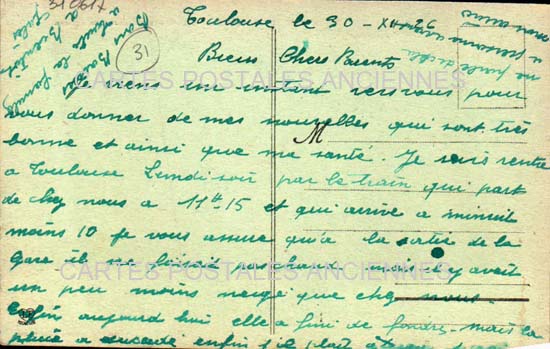 310617
31
Toulouse le 30-XII-26
Biens Chers Parents
Je viens un instant vers vous pour
vous donner de mes nouvelles qui sont très
bonne et ainsi que ma santé. Je suis rentré
M
a Toulouse Lundi soir par le train qui part
de chez nous a 11h15 et qui arrive a minuit
moins 10 je vous assure qu'a la sortie de la
Gare il ne faisait pas y avait
un peu moins neige que chez nous.
Enfin aujourd hui elle a fini de fondre. Mais la
pluie a succédé enfin s'il plait
Bon Baiser
a toute la famille
a Bientôt
CARTES POSTALES ANCIENNES
CARTES POSTALES ANCIENNES